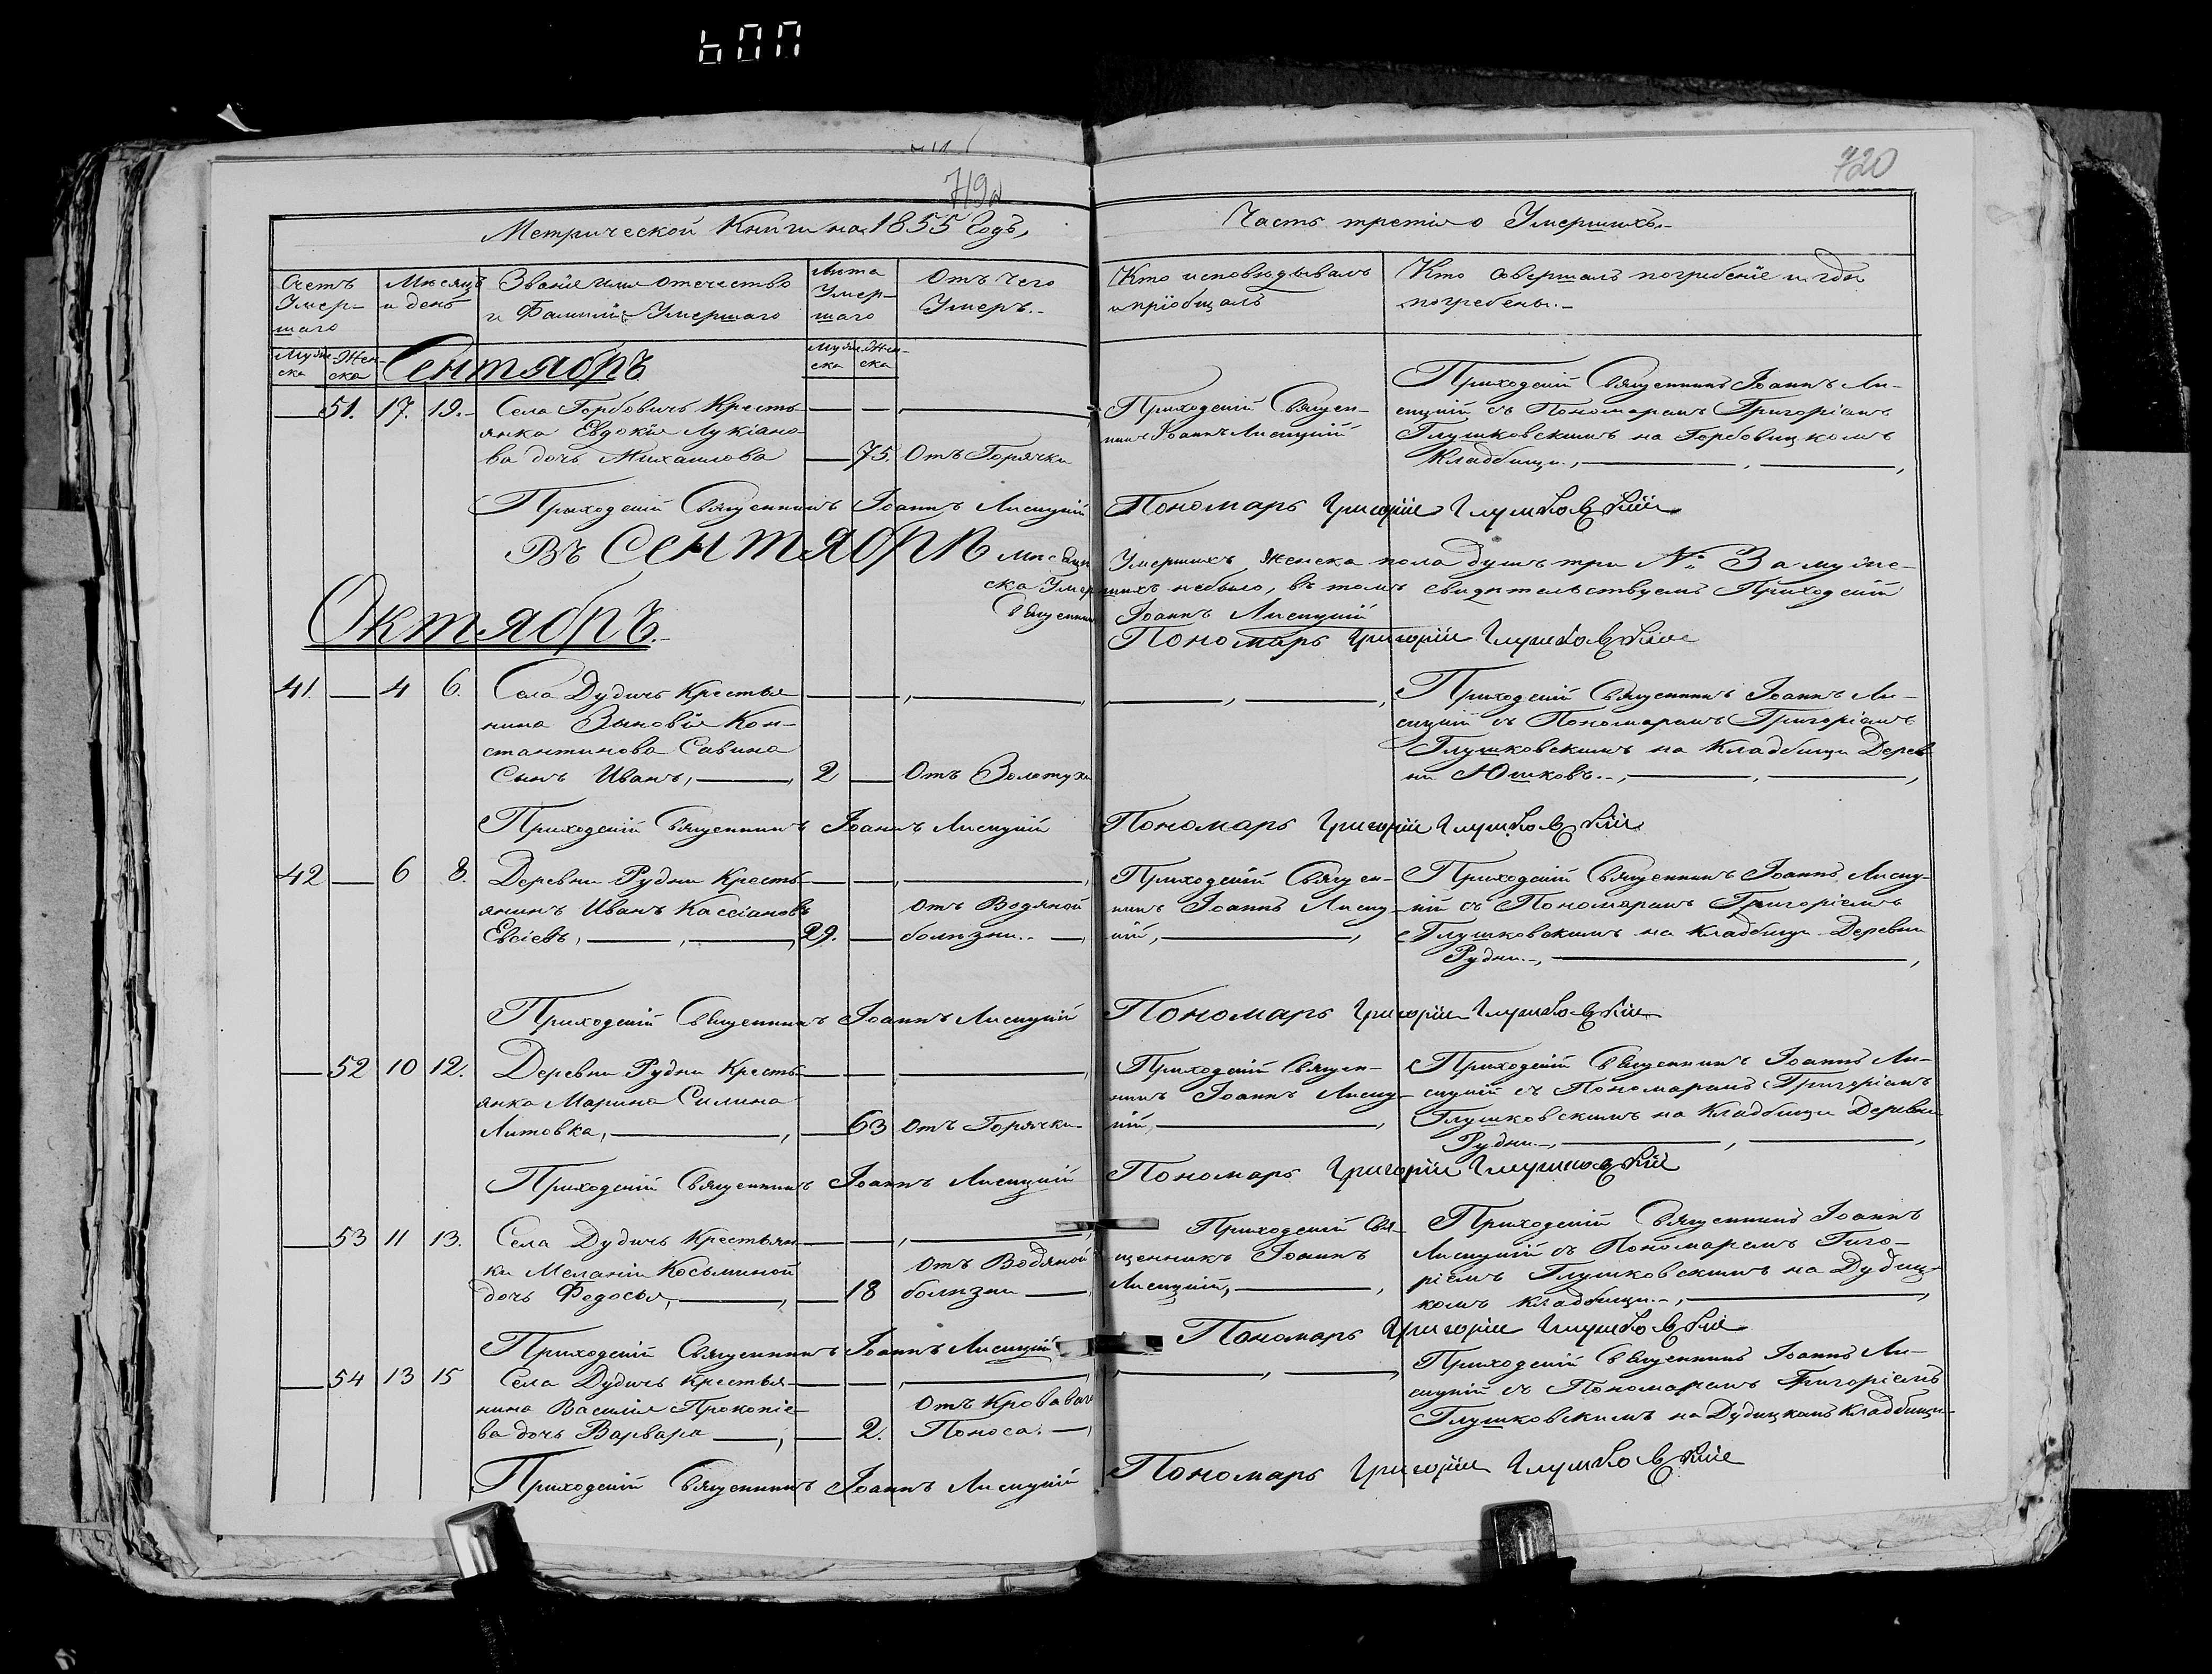 600
719
720
Метрической Книги на 1855 Годъ,
Часть третія о Умершихъ.-
Счетъ Умер-шаго
Мѣсяцъ и день
Званіе имя отечество
и Фамилія Умершаго
Лѣта Умер-шаго
Отъ чего
Умеръ.-
Кто исповѣдывалъ
и пріобщалъ
Кто совершалъ погребеніе и гдѣ
погребены.-
Муже-ска
Жен-ска
Сентябрь
Муже-ска
Жен-ска
51. 17. 19.- Села Горбовичъ Кресть-
янка Евдокія Лукіано-
ва дочь Михаилова 75. Отъ Горячки
Приходскій Священ-
никъ Іоаннъ Лисицкій
Приходскій Священникъ Іоаннъ Ли-
сицкій съ Пономаремъ Григоріемъ
Глушковскимъ на Горбовицкомъ
Кладбищѣ.,
Приходскій Священникъ Іоаннъ Лисицкій Пономарь Григорій Глушковскій
Въ Сентябрѣ мѣсяцѣ Умершихъ женска пола душъ три № 3 а муже-
ска Умершихъ небыло, въ томъ свидѣтельствуемъ Приходскій
Священникъ Іоаннъ Лисицкій
Пономарь Григорій Глушковскій
Октябрь.
41. 4 6. Села Дудичъ Крестья-
нина Зыновія Кон-
стантинова Савина
Сынъ Иванъ, 2 Отъ Золотухи
Приходскій Священникъ Іоаннъ Ли-
сицкій съ Пономаремъ Григоріемъ
Глушковскимъ на Кладбищѣ Дерев-
ни Юшковъ.-,
Приходскій Священникъ Іоаннъ Лисицкій Пономарь Григорій Глушковскій
42 6 8. Деревни Рудни Кресть-
янинъ Иванъ Кассіановъ
Евсіевъ, 29. отъ Водяной
болѣзни.-
Приходскій Священ-
никъ Іоаннъ Лисиц-
кій,
Приходскій Священникъ Іоаннъ Лисиц-
кій съ Пономаремъ Григоріемъ
Глушковскимъ на Кладбищѣ Деревни
Рудни.-,
Приходскій Священникъ Іоаннъ Лисицкій Пономарь Григорій Глушковскій
52 10 12. Деревни Рудни Кресть-
янка Марина Силина
Литовка, 63 Отъ Горячки-
Приходскій Священ-
никъ Іоаннъ Лисиц-
кій,
Приходскій Священникъ Іоаннъ Ли-
сицкій съ Пономаремъ Григоріемъ
Глушковскимъ на Кладбищѣ Деревни
Рудни.-,
Приходскій Священникъ Іоаннъ Лисицкій Пономарь Григорій Глушковскій
53 11 13. Села Дудичъ Крестьян-
ки Меланіи Косьминой
дочь Федосья, 18 отъ Водяной
болѣзни
Приходскій Свя-
щенникъ Іоаннъ
Лисицкій,
Приходскій Священникъ Іоаннъ
Лисицкій съ Пономаремъ Гиго-
ріемъ Глушковскимъ на Дудиц-
комъ Кладбищѣ.-,
Приходскій Священникъ Іоаннъ Лисицкій Пономарь Григорій Глушковскій
54 13 15 Села Дудичъ Крестья-
нина Василія Прокопіе-
ва дочь Варвара 2. отъ Кроваваго
Поноса.
Приходскій Священникъ Іоаннъ Ли-
сицкій съ Пономаремъ Григоріемъ
Глушковскимъ на Дудицкомъ Кладбищѣ-
Приходскій Священникъ Іоаннъ Лисицкій Пономарь Григорій Глушковскій